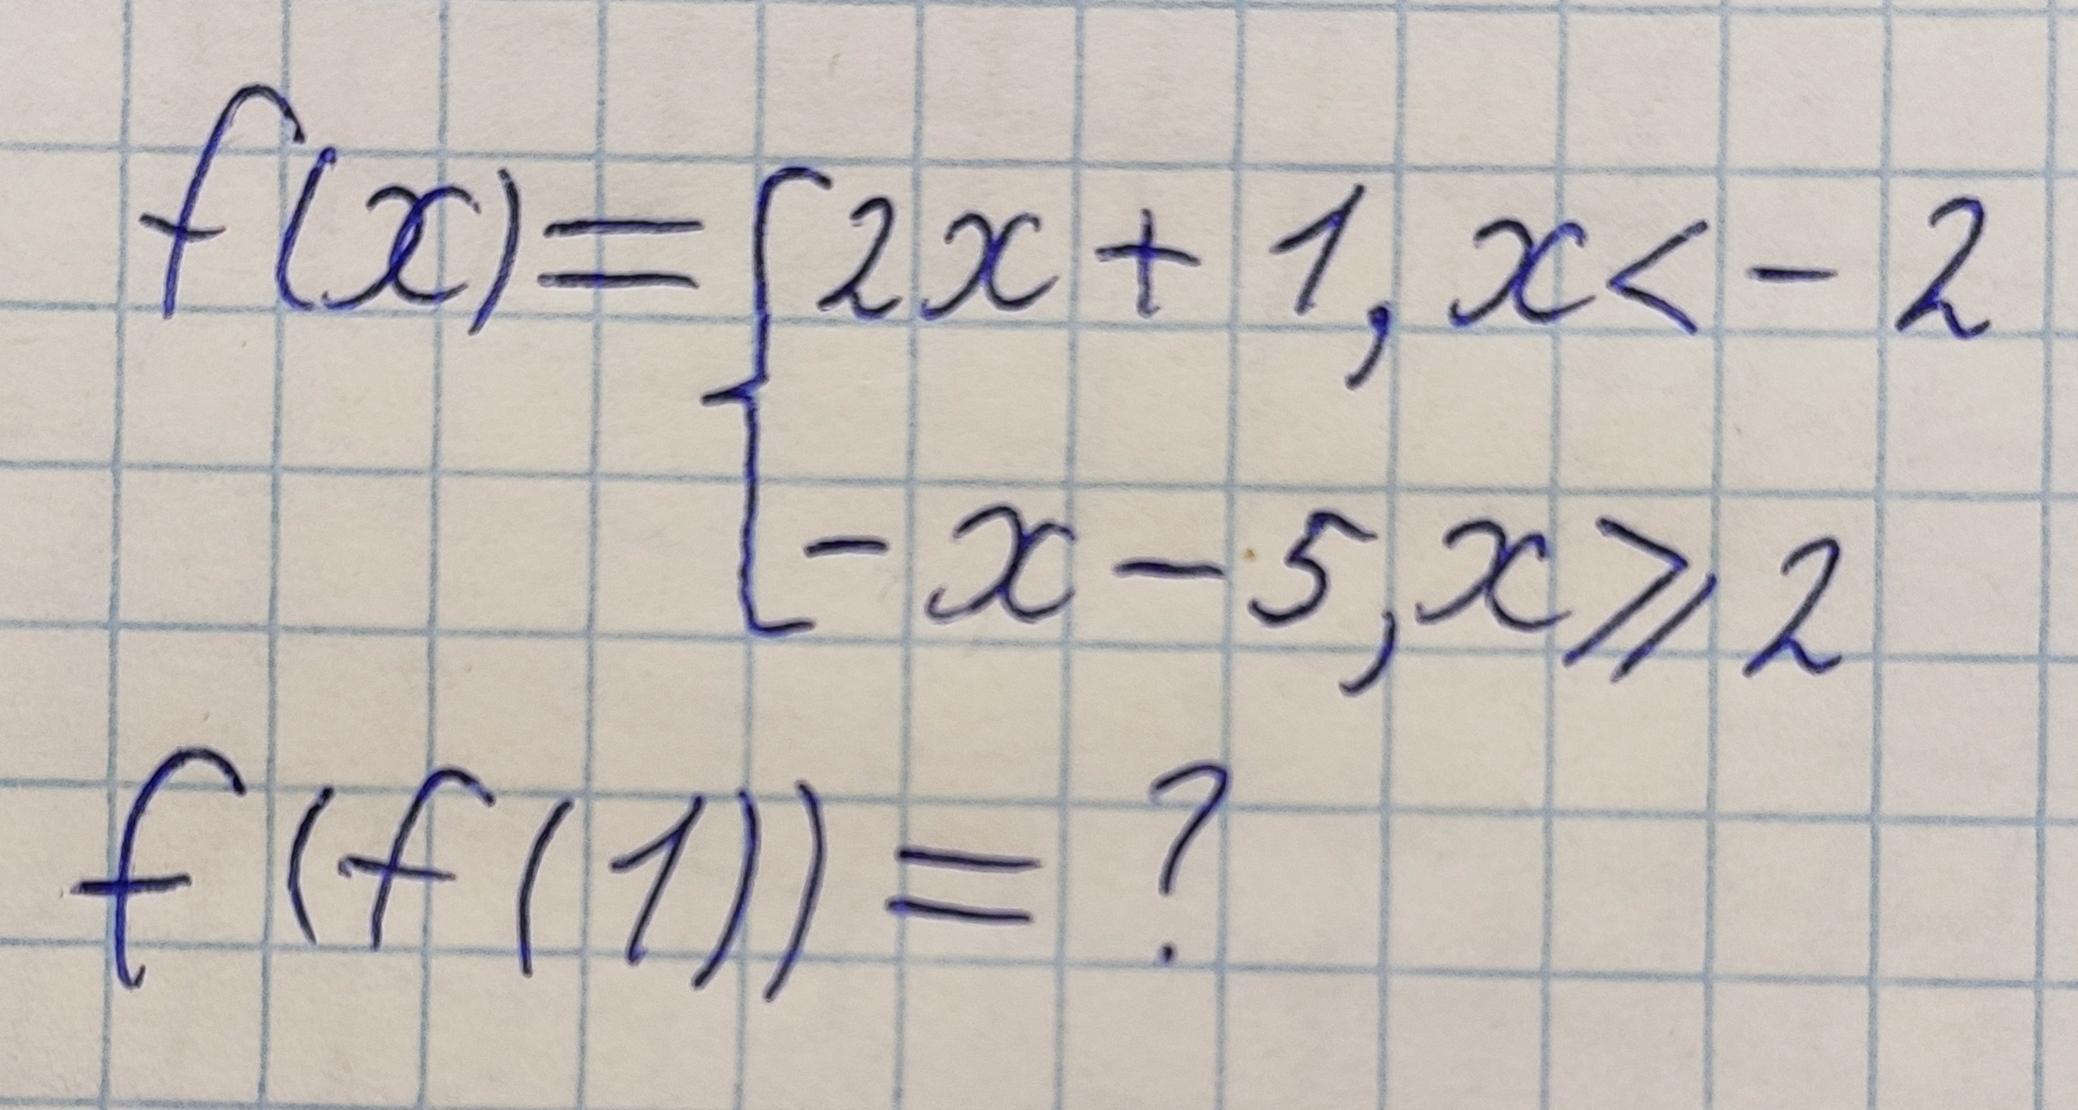 f(x) = { 2x + 1, x < - 2
- x - 5, x ⩾ 2
f(f(1)) = ?